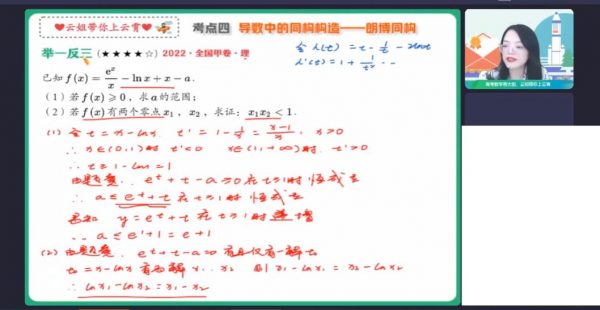 ❤云姐带你上云霄❤
考点四 导数中的同构构造——朗博同构
举一反三 (★★★★☆) 2022·全国甲卷·理
令 h(t) = t - 1/t - 2lnt
h'(t) = 1 + 1/t² ...
已知 f(x) = e^x/x - ln x + x - a.
(1) 若 f(x) ⩾ 0, 求 a 的范围;
(2) 若 f(x) 有两个零点 x₁, x₂, 求证: x₁x₂ < 1.
(1) 令 t = x - lnx. t' = 1 - 1/x = (x-1)/x, x>0
∴ x∈(0,1)时 t'<0 x∈(1,+∞)时. t'>0
∴ t ≥ 1 - ln1 = 1
由题意. e^t + t - a ≥ 0 在 t≥1时 恒成立
∴ a ≤ e^t + t 在 t≥1时 恒成立
易知 y = e^t + t 在 t≥1时 递增
∴ a ≤ e¹ + 1 = e + 1
(2) 由题意. e^t + t - a = 0 有且仅有一解 t₀
t₀ = x - lnx 有两解 x₁, x₂ 则 x₁ - lnx₁ = x₂ - lnx₂
∴ lnx₁ - lnx₂ = x₁ - x₂